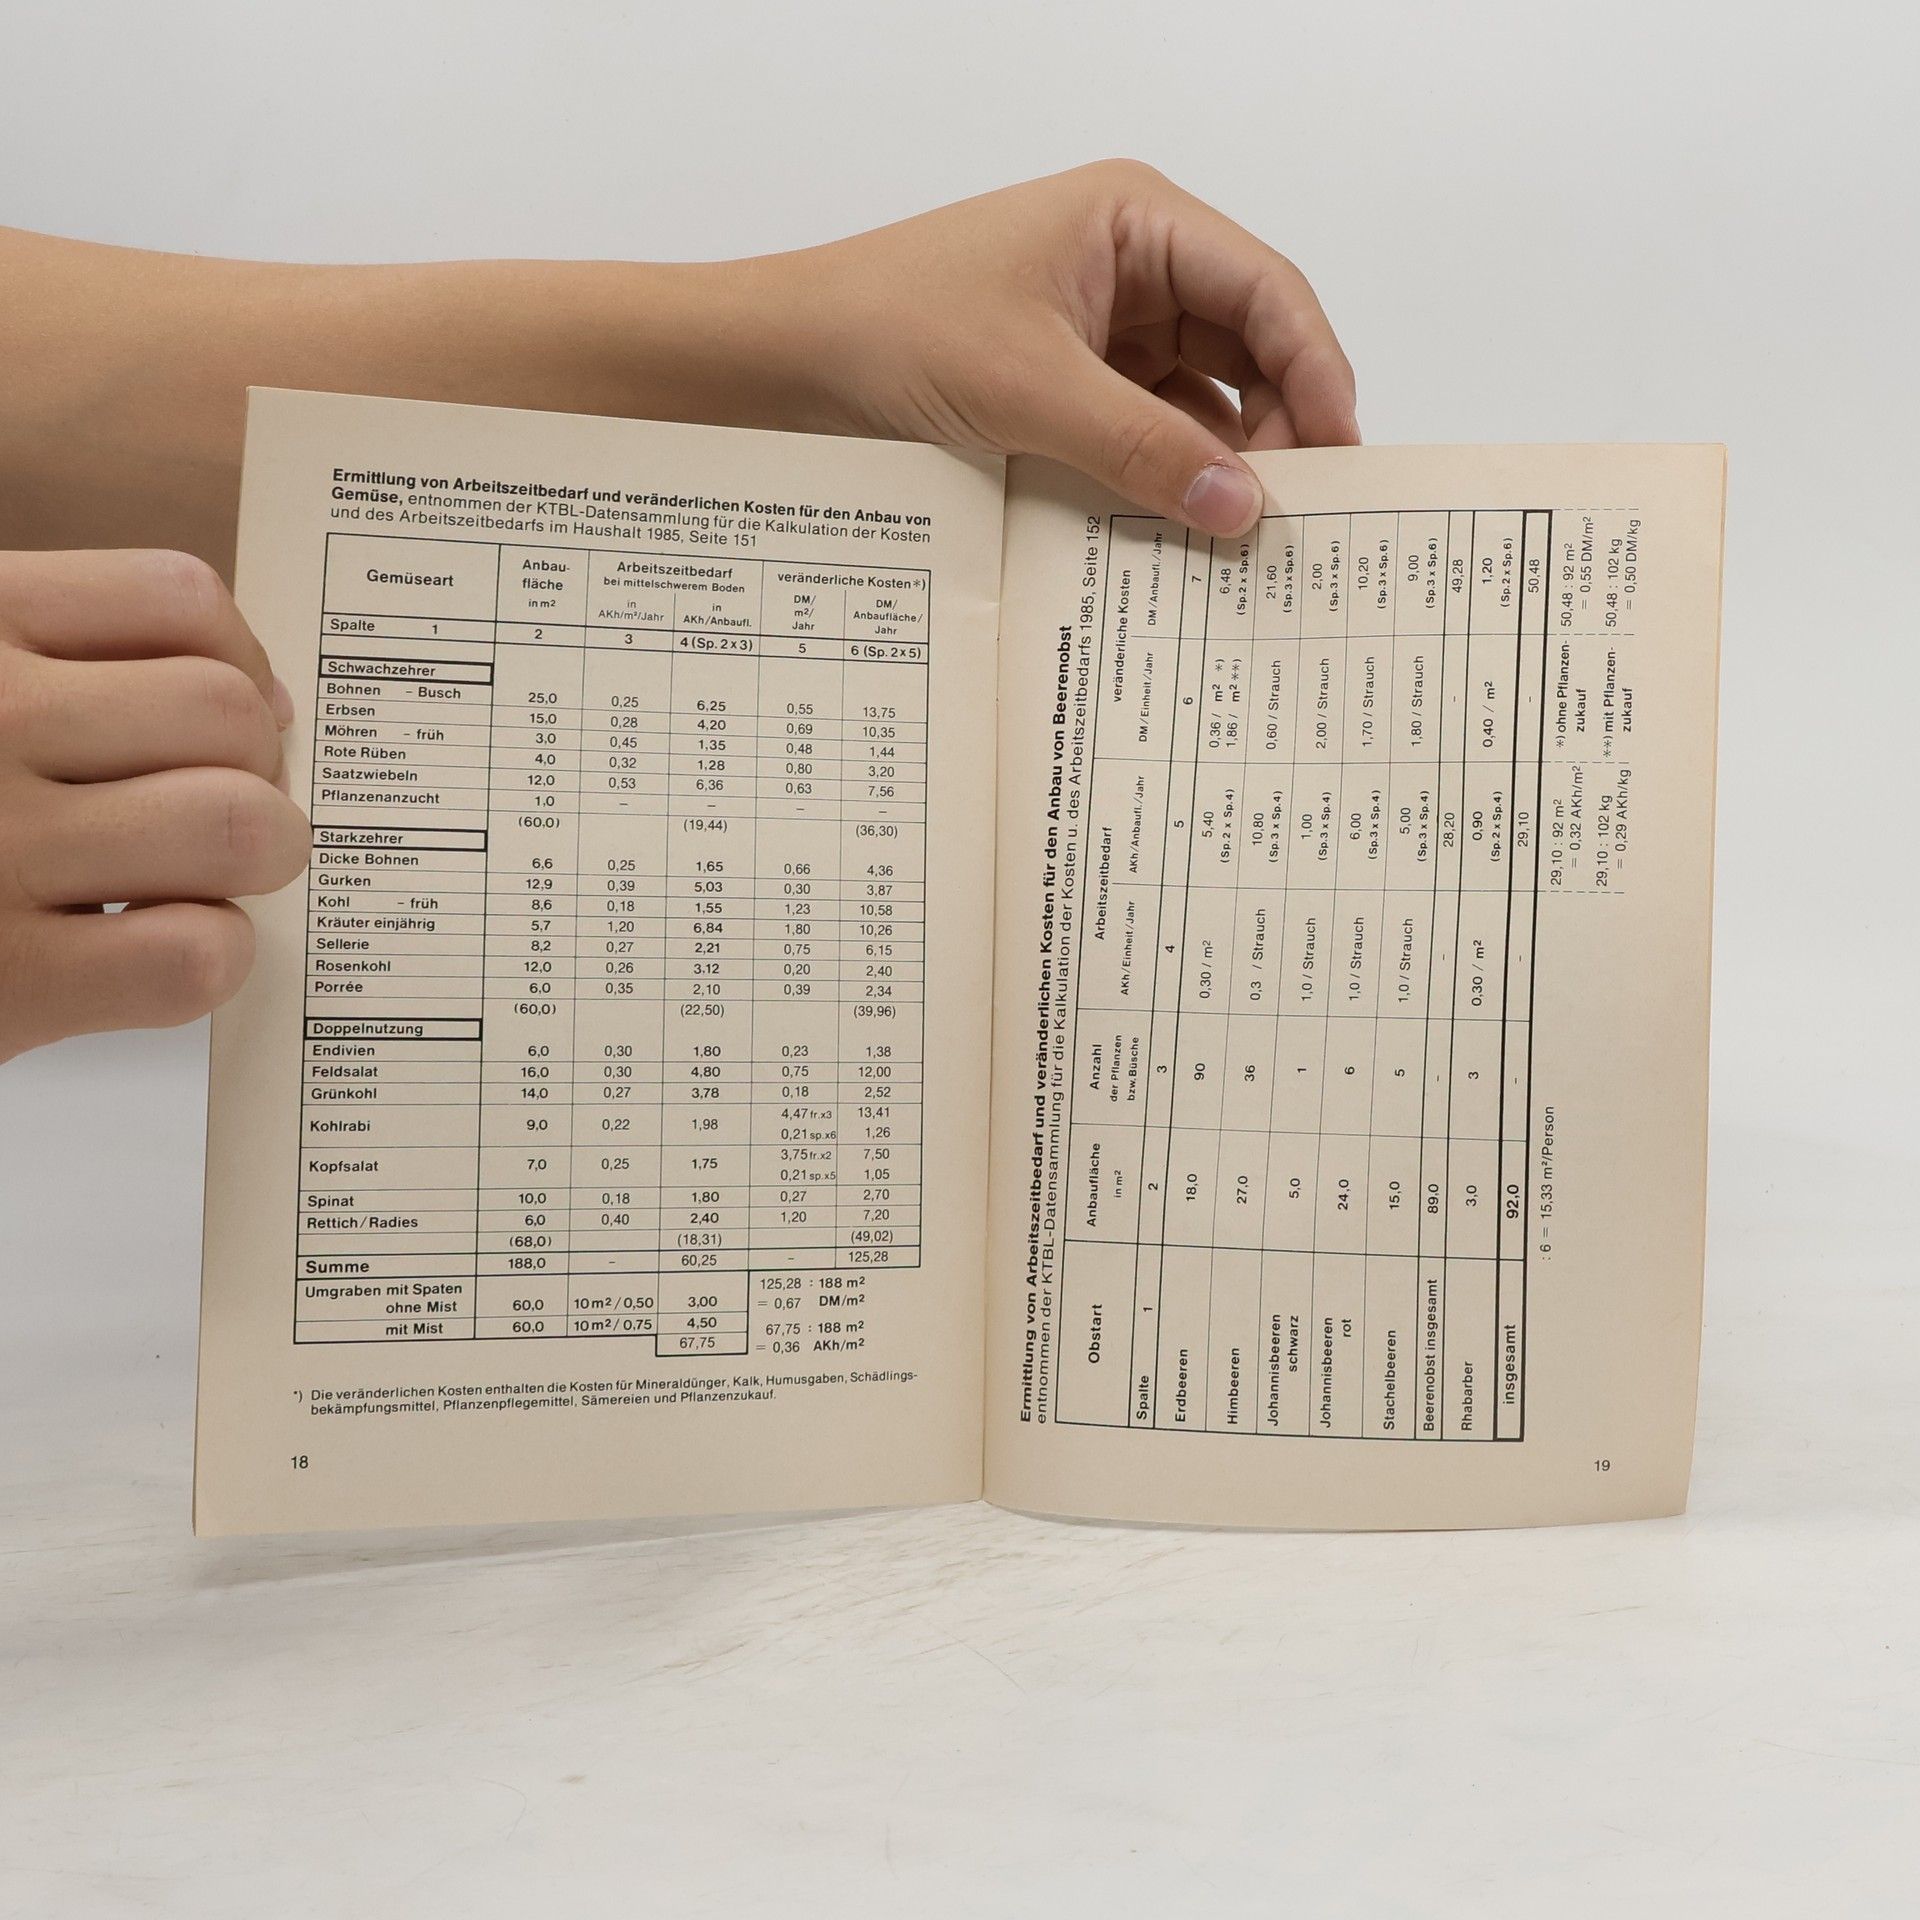 Ermittlung von Arbeitszeitbedarf und veränderlichen Kosten für den Anbau von
Gemüse, entnommen der KTBL-Datensammlung für die Kalkulation der Kosten
und des Arbeitszeitbedarfs im Haushalt 1985, Seite 151
Gemüseart Anbau- Arbeitszeitbedarf veränderliche Kosten*)
fläche bei mittelschwerem Boden
in m² in in DM/ DM/
AKh/m²/Jahr AKh/Anbaufl. m²/ Anbaufläche/
Jahr Jahr
Spalte 1 2 3 4 (Sp. 2x3) 5 6 (Sp. 2x5)
Schwachzehrer
Bohnen – Busch 25,0 0,25 6,25 0,55 13,75
Erbsen 15,0 0,28 4,20 0,69 10,35
Möhren – früh 3,0 0,45 1,35 0,48 1,44
Rote Rüben 4,0 0,32 1,28 0,80 3,20
Saatzwiebeln 12,0 0,53 6,36 0,63 7,56
Pflanzenanzucht 1,0 – – – –
(60,0) (19,44) (36,30)
Starkzehrer
Dicke Bohnen 6,6 0,25 1,65 0,66 4,36
Gurken 12,9 0,39 5,03 0,30 3,87
Kohl – früh 8,6 0,18 1,55 1,23 10,58
Kräuter einjährig 5,7 1,20 6,84 1,80 10,26
Sellerie 8,2 0,27 2,21 0,75 6,15
Rosenkohl 12,0 0,26 3.12 0,20 2,40
Porrée 6,0 0,35 2,10 0,39 2,34
(60,0) (22,50) (39,96)
Doppelnutzung
Endivien 6,0 0,30 1,80 0,23 1,38
Feldsalat 16,0 0,30 4,80 0,75 12,00
Grünkohl 14,0 0,27 3,78 0,18 2,52
Kohlrabi 9,0 0,22 1,98 4,47 fr.x3 13,41
0,21 sp.x6 1,26
Kopfsalat 7,0 0,25 1,75 3,75 fr.x2 7,50
0,21 sp.x5 1,05
Spinat 10,0 0,18 1,80 0,27 2,70
Rettich/Radies 6,0 0,40 2,40 1,20 7,20
(68,0) (18,31) (49,02)
Summe 188,0 – 60,25 – 125,28
Umgraben mit Spaten 125,28 : 188 m²
ohne Mist 60,0 10 m²/0,50 3,00 = 0,67 DM/m²
mit Mist 60,0 10 m²/0,75 4,50 67,75 : 188 m²
67,75 = 0,36 AKh/m²
*) Die veränderlichen Kosten enthalten die Kosten für Mineraldünger, Kalk, Humusgaben, Schädlings-
bekämpfungsmittel, Pflanzenpflegemittel, Sämereien und Pflanzenzukauf.
18
Ermittlung von Arbeitszeitbedarf und veränderlichen Kosten für den Anbau von Beerenobst
entnommen der KTBL-Datensammlung für die Kalkulation der Kosten u. des Arbeitszeitbedarfs 1985, Seite 152
Obstart Anbaufläche Anzahl Arbeitszeitbedarf veränderliche Kosten
in m² der Pflanzen AKh/Einheit/Jahr AKh/Anbaufl./Jahr DM/Einheit/Jahr DM/Anbaufl./Jahr
bzw. Büsche
Spalte 1 2 3 4 5 6 7
Erdbeeren 18,0 90 0,30 / m² 5,40 0,36 / m² *) 6,48
(Sp. 2 x Sp.4) 1,86 / m² **) (Sp. 2 x Sp.6)
Himbeeren 27,0 36 0,3 / Strauch 10,80 0,60 / Strauch 21,60
(Sp.3 x Sp.4) (Sp.3 x Sp.6)
Johannisbeeren 5,0 1 1,0 / Strauch 1,00 2,00 / Strauch 2,00
schwarz (Sp.3 x Sp.4) (Sp.3 x Sp.6)
Johannisbeeren 24,0 6 1,0 / Strauch 6,00 1,70 / Strauch 10,20
rot (Sp.3 x Sp.4) (Sp.3 x Sp.6)
Stachelbeeren 15,0 5 1,0 / Strauch 5,00 1,80 / Strauch 9,00
(Sp.3 x Sp.4) (Sp.3 x Sp.6)
Beerenobst insgesamt 89,0 – – 28,20 – 49,28
Rhabarber 3,0 3 0,30 / m² 0,90 0,40 / m² 1,20
(Sp. 2 x Sp.4) (Sp. 2 x Sp.6)
insgesamt 92,0 – – 29,10 – 50,48
: 6 = 15,33 m²/Person 29,10 : 92 m² *) ohne Pflanzen- 50,48 : 92 m²
= 0,32 AKh/m² zukauf = 0,55 DM/m²
29,10 : 102 kg **) mit Pflanzen- 50,48 : 102 kg
= 0,29 AKh/kg zukauf = 0,50 DM/kg
19